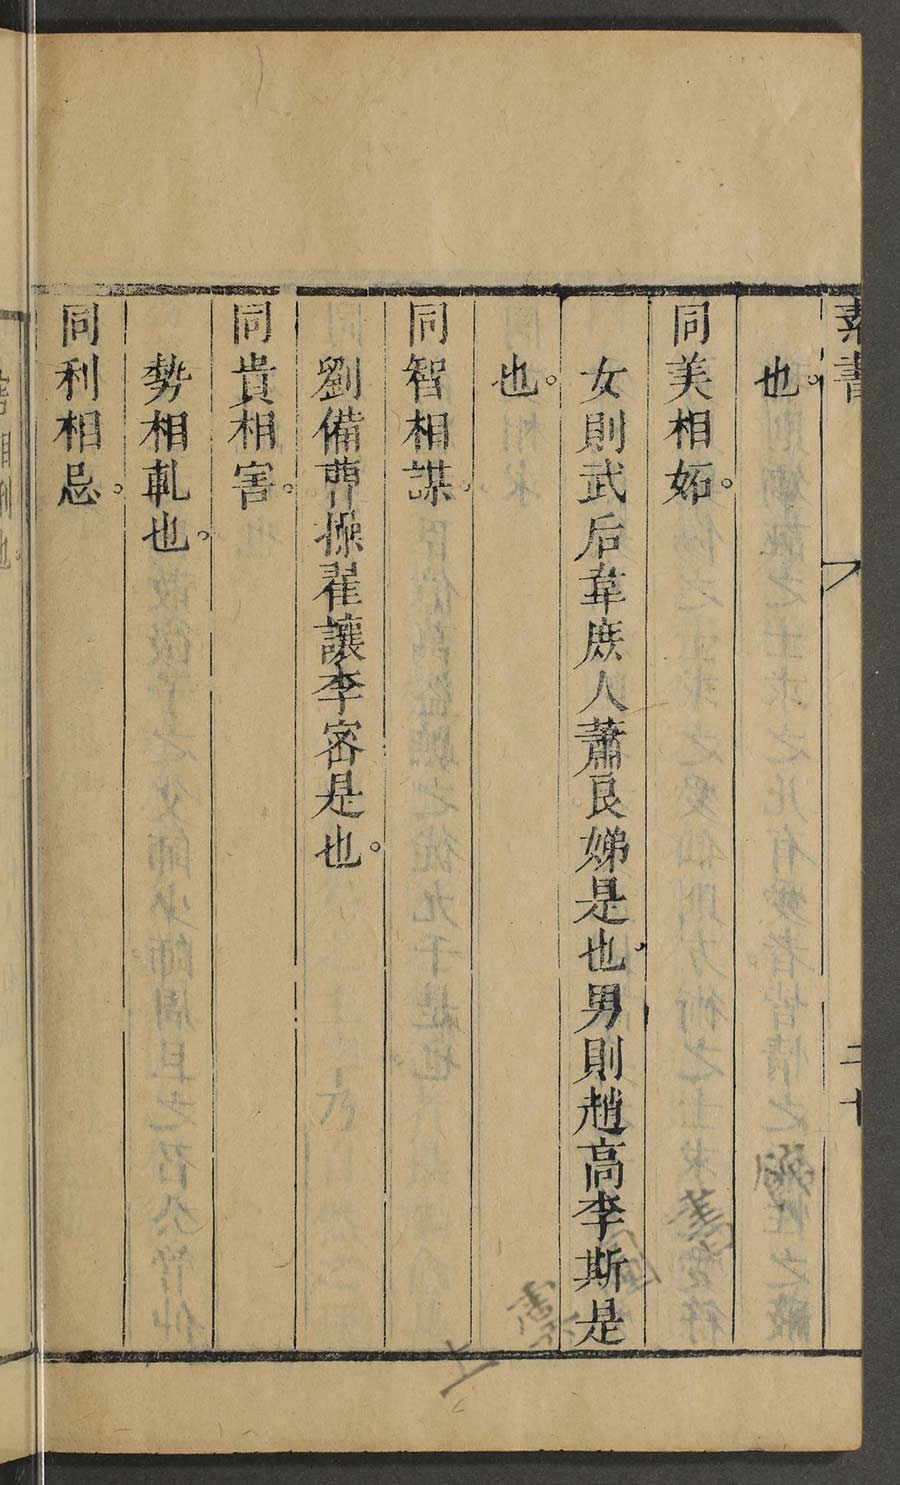 素書
也。
同美相妬。
女則武后韋庶人蕭良娣是也。男則趙高李斯是
也。
同智相謀。
劉備曹操翟讓李密是也。
同貴相害。
勢相軋也。
同利相忌。
害相刑也。